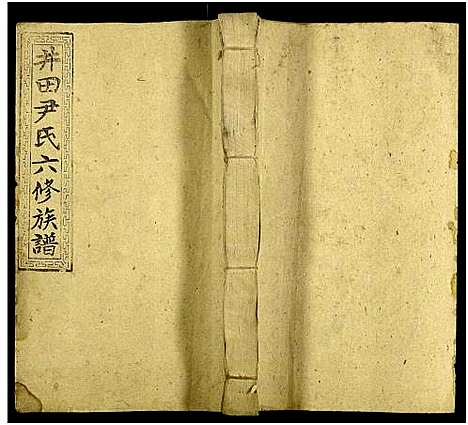 井田尹氏六修族譜